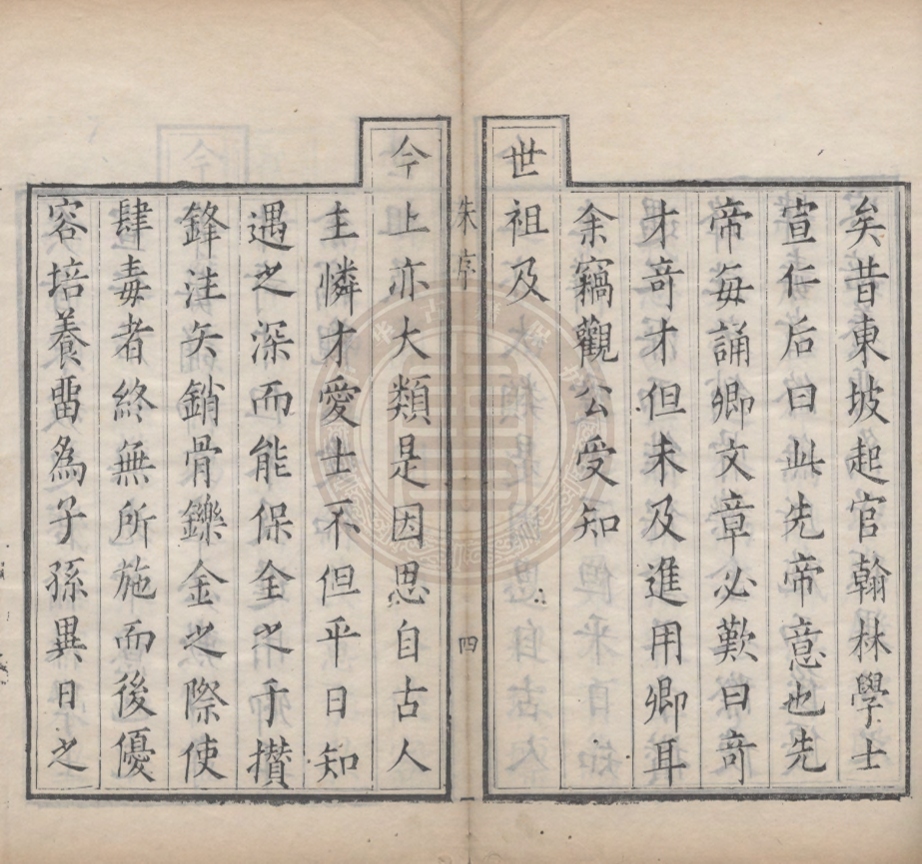 矣昔東坡起官翰林學士
宣仁后曰此先帝意也先
帝每誦卿文章必歎曰奇
才奇才但未及進用卿耳
余竊觀公受知
世祖及
朱序
四
今上亦大類是因思自古人
主憐才愛士不但平日知
遇之深而能保全之于攅
鋒注矢銷骨鑠金之際使
肆毒者終無所施而後優
容培養畱為子孫異日之